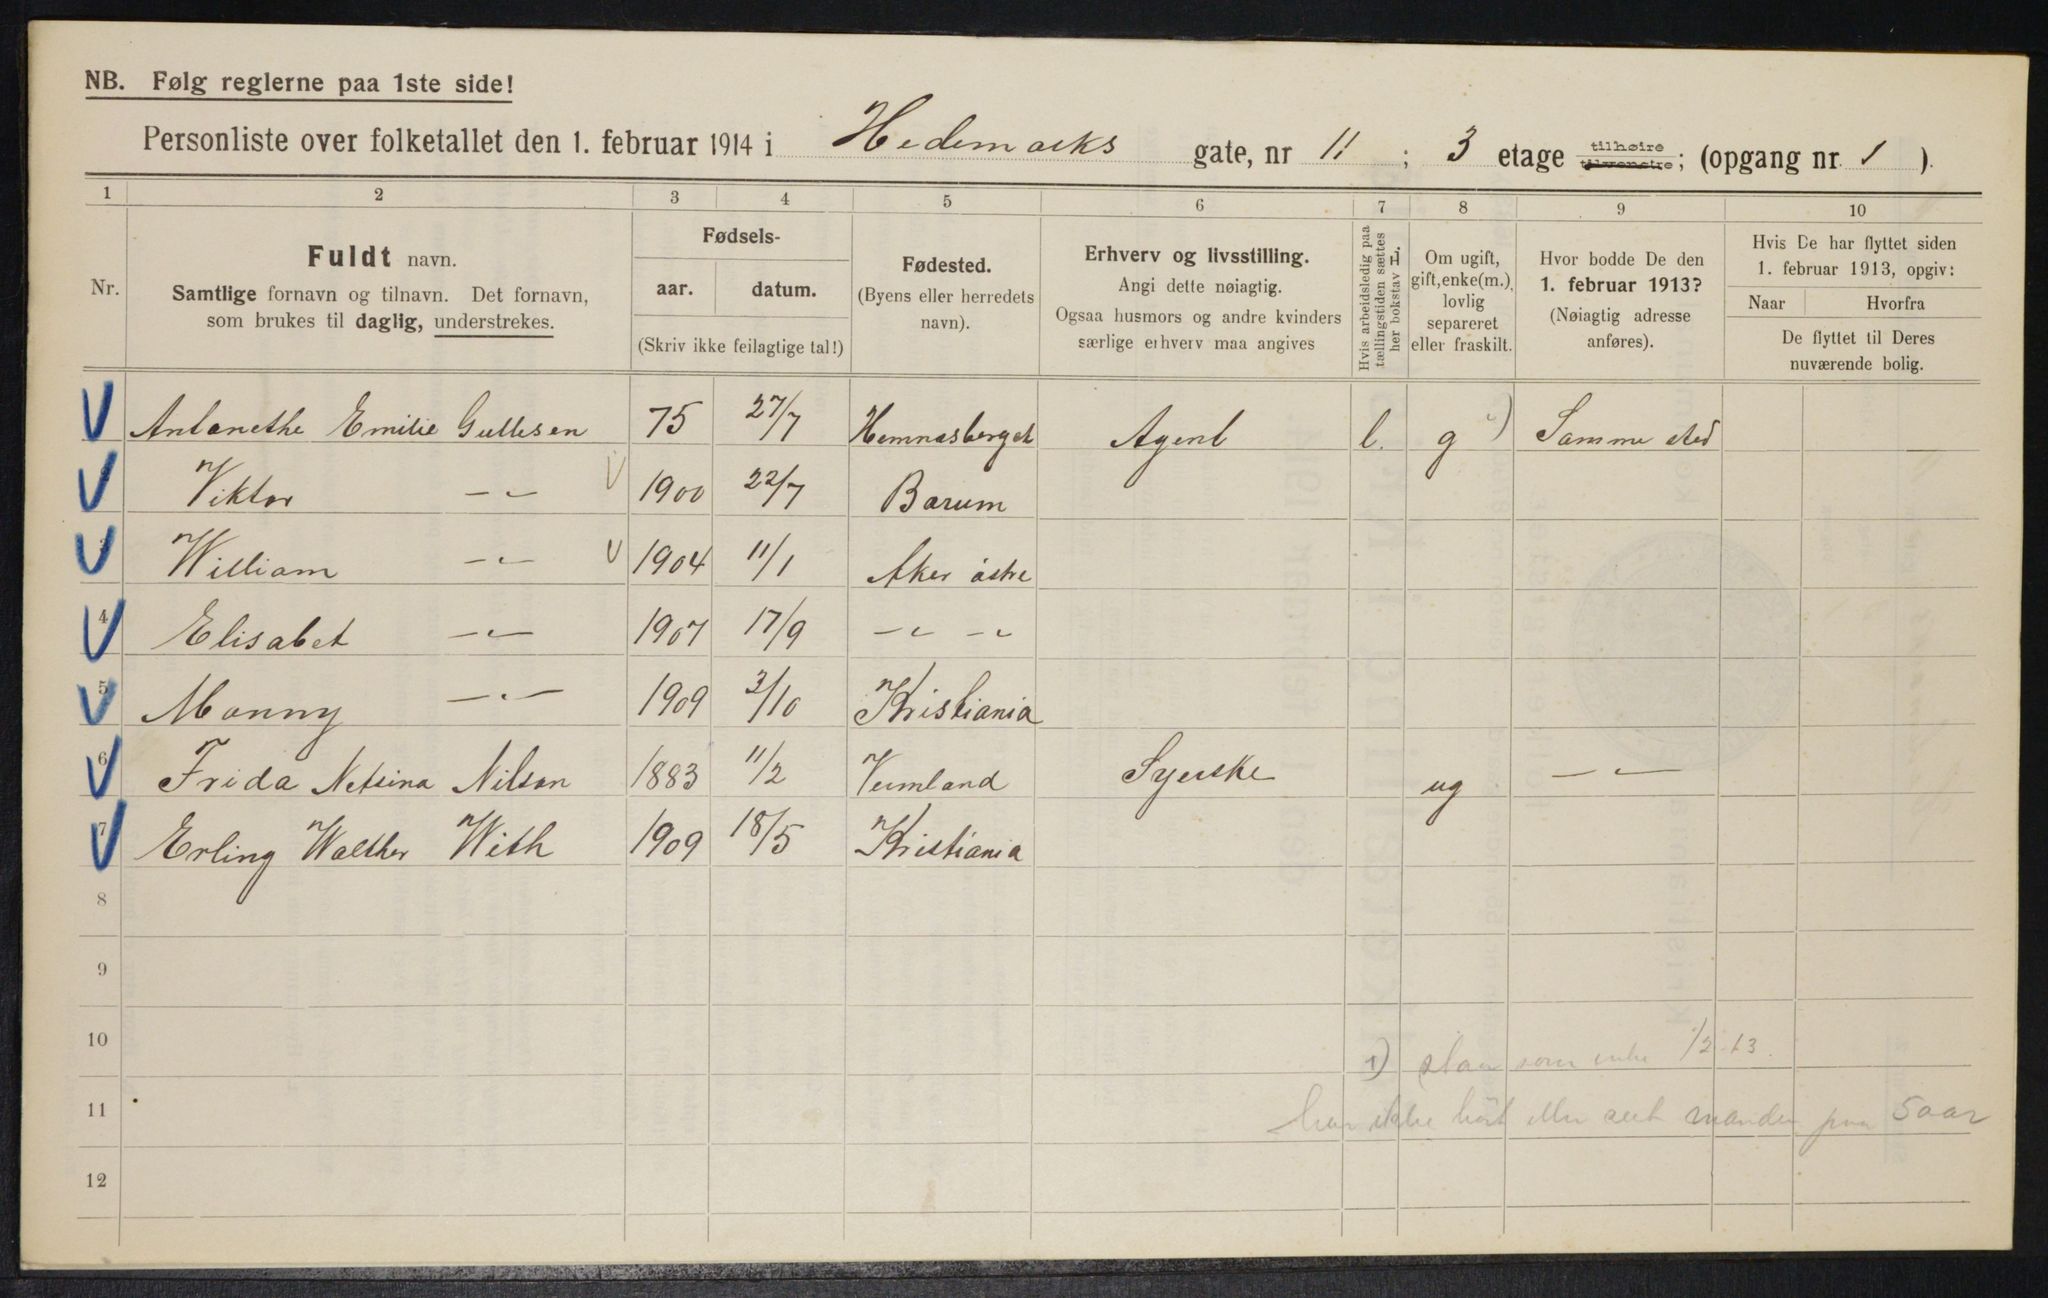 NB. Følg reglerne paa 1ste side!
Personliste over folketallet den 1. februar 1914 i Hedemarks gate, nr 11 ; 3 etage tilhøire tilvenstre; (opgang nr 1 ).
1 2 3 4 5 6 7 8 9 10
Nr.
Fuldt navn.
Samtlige fornavn og tilnavn. Det fornavn,
som brukes til daglig, understrekes.
Fødsels-
aar. datum.
(Skriv ikke feilagtige tal!)
Fødested.
(Byens eller herredets
navn).
Erhverv og livsstilling.
Angi dette nøiagtig.
Ogsaa husmors og andre kvinders
særlige erhverv maa angives
Hvis arbeidsledig paa
tællingstiden sættes
her bokstav L.
Om ugift,
gift, enke(m.),
lovlig
separeret
eller fraskilt.
Hvor bodde De den
1. februar 1913?
(Nøiagtig adresse
anføres).
Hvis De har flyttet siden
1. februar 1913, opgiv:
Naar Hvorfra
De flyttet til Deres
nuværende bolig.
Antonethe Emilie Gullesen 75 27/7 Hemnesberget Agent l. g 1) Samme sted
Viktor -"- 1900 22/7 Bærum
3 William -"- 1904 11/1 Aker østre
4 Elisabet -"- 1907 17/9 -"- -"-
5 Monny -"- 1909 3/10 Kristiania
6 Frida Nilsen 1883 11/2 Vermland Syerske ug -"-
7 Erling Walther With 1909 18/5 Kristiania
8
9
10
1) staar som enke 1/2 13.
11
har ikke hört eller seet manden paa 5 aar
12